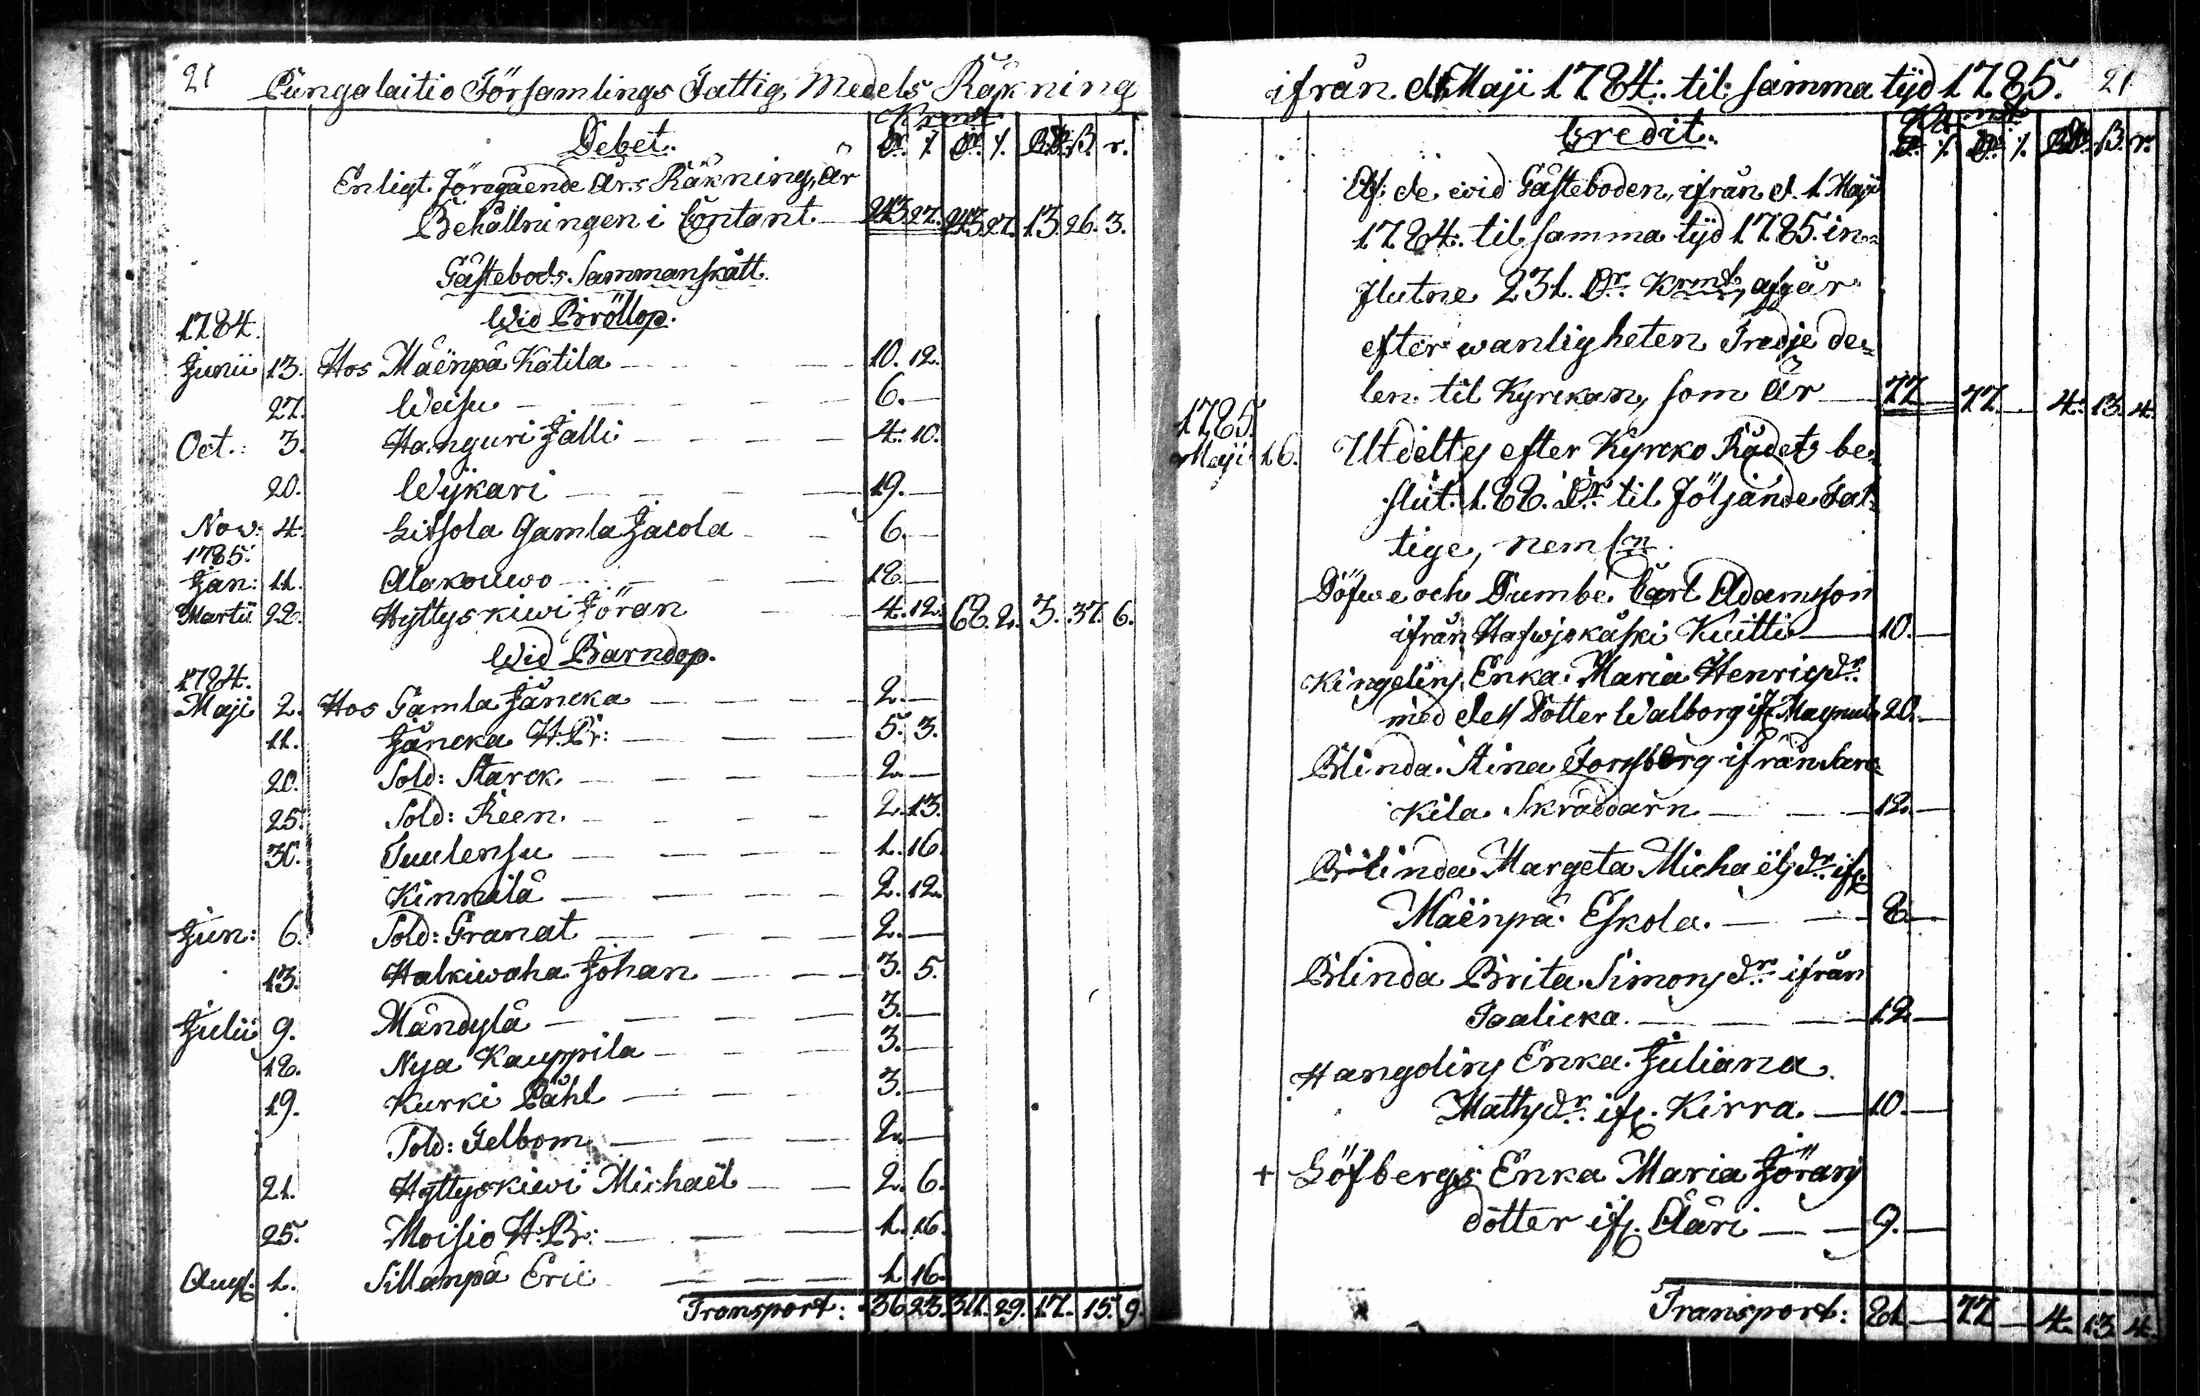 21 Pungalaitio Församlings Fattig Medels Räkning
Krmt
Debet. Dr. ⁒ Dr. ⁒ RD. ß. r.
Enligt föregående Års Räkning, är
Behållningen i Contant 243 27. 243 27. 13. 26. 3.
Gästebods Sammanskått.
1784. Wid Bröllop.
Junii 13. Hos Mäenpä Katila 10. 12.
27. Weisu 6. —
Oct.: 3. Hanguri Jalli 4. 10.
20. Wijkari 19. —
Nov: 4. Litsola Gamla Jacola 6. —
1785.
Jan: 11. Alakouwo 18. —
Martii 22. Hyttyskiwi Jöran 4. 12. 68. 2. 3. 37. 6.
Wid Barndop.
1784.
Maji 2. Hos Gamla Jäncka 2. —
11. Jäncka H:Br: 5. 3.
20. Sold: Starck 2. —
25. Sold: Reen 2. 13.
30. Tuulensu 1. 16.
Kinnilä 2. 12.
Jun: 6. Sold: Granat 2. —
13. Halkiwaha Johan 3. 5.
Julii 9. Mändylä 3. —
18. Nya Kauppila 3. —
19. Kurki Påhl 3. —
Sold: Felbom 2. —
21. Hyttyskiwi Michaël 2. 6.
25. Moisio H:Br: 1. 16.
Aug. 1. Sillanpä Eric 1. 16.
Transport: 36 23. 311. 29. 17. 15. 9.
ifrån d. 1 Maji 1784. til samma tijd 1785. 21
Krmt
Credit. Dr. ⁒ Dr. ⁒ RD. ß. r.
Af de wid Gästeboden, ifrån d. 1 Maji
1784. til samma tijd 1785. in-
flutne 231. Dr. Krmt, afgår
efter wanligheten Tredje de-
len til Kyrckan, som är 77 — 77 — 4. 13. 4.
1785.
Maji 16. Utdeltes efter Kyrcko Rådets be-
slut 188. Dr. til följande Fat-
tige, nemln.
Döfwe och Dumbe Carl Adamsson
ifrån Hafwjokäski Kuitti 10. —
Kingelins Enka Maria Henricsdr.
med dess Dotter Walborg if. Magnula 20. —
Blinda Stina Forsberg ifrån
Kila Skräddarn 12. —
Blinda Margeta Michaëlsdr. if.
Mäenpä Eskola. 8. —
Blinda Brita Simonsdr. ifrån
Taalicka. 12. —
Hangolins Enka Juliana
Mattsdr. if. Kirra. 10. —
+ Löfbergs Enka Maria Jörans
dotter if. Ääri 9. —
Transport: 81. — 77 — 4. 13. 4.